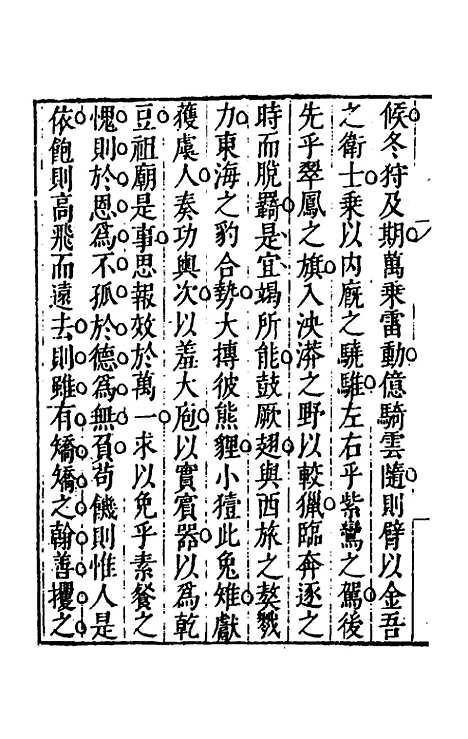 候冬狩及期萬乗雷動億騎雲隨則臂以金吾
之衛士乗以内廐之驍騅左右乎紫鸞之駕後
先乎翠鳳之旗入泱漭之野以較獵臨奔逐之
時而脫羈是宜竭所能鼓厥翅與西旅之獒戮
力東海之豹合勢大摶彼熊貍小㨖此兔雉獻
獲虞人奏功輿次以羞大庖以實賓器以為乾
豆祖廟是事思報效於萬一求以免乎素餐之
愧則於恩為不孤於德為無負苟饑則惟人是
依飽則高飛而遠去則雖有矯矯之翰善攫之